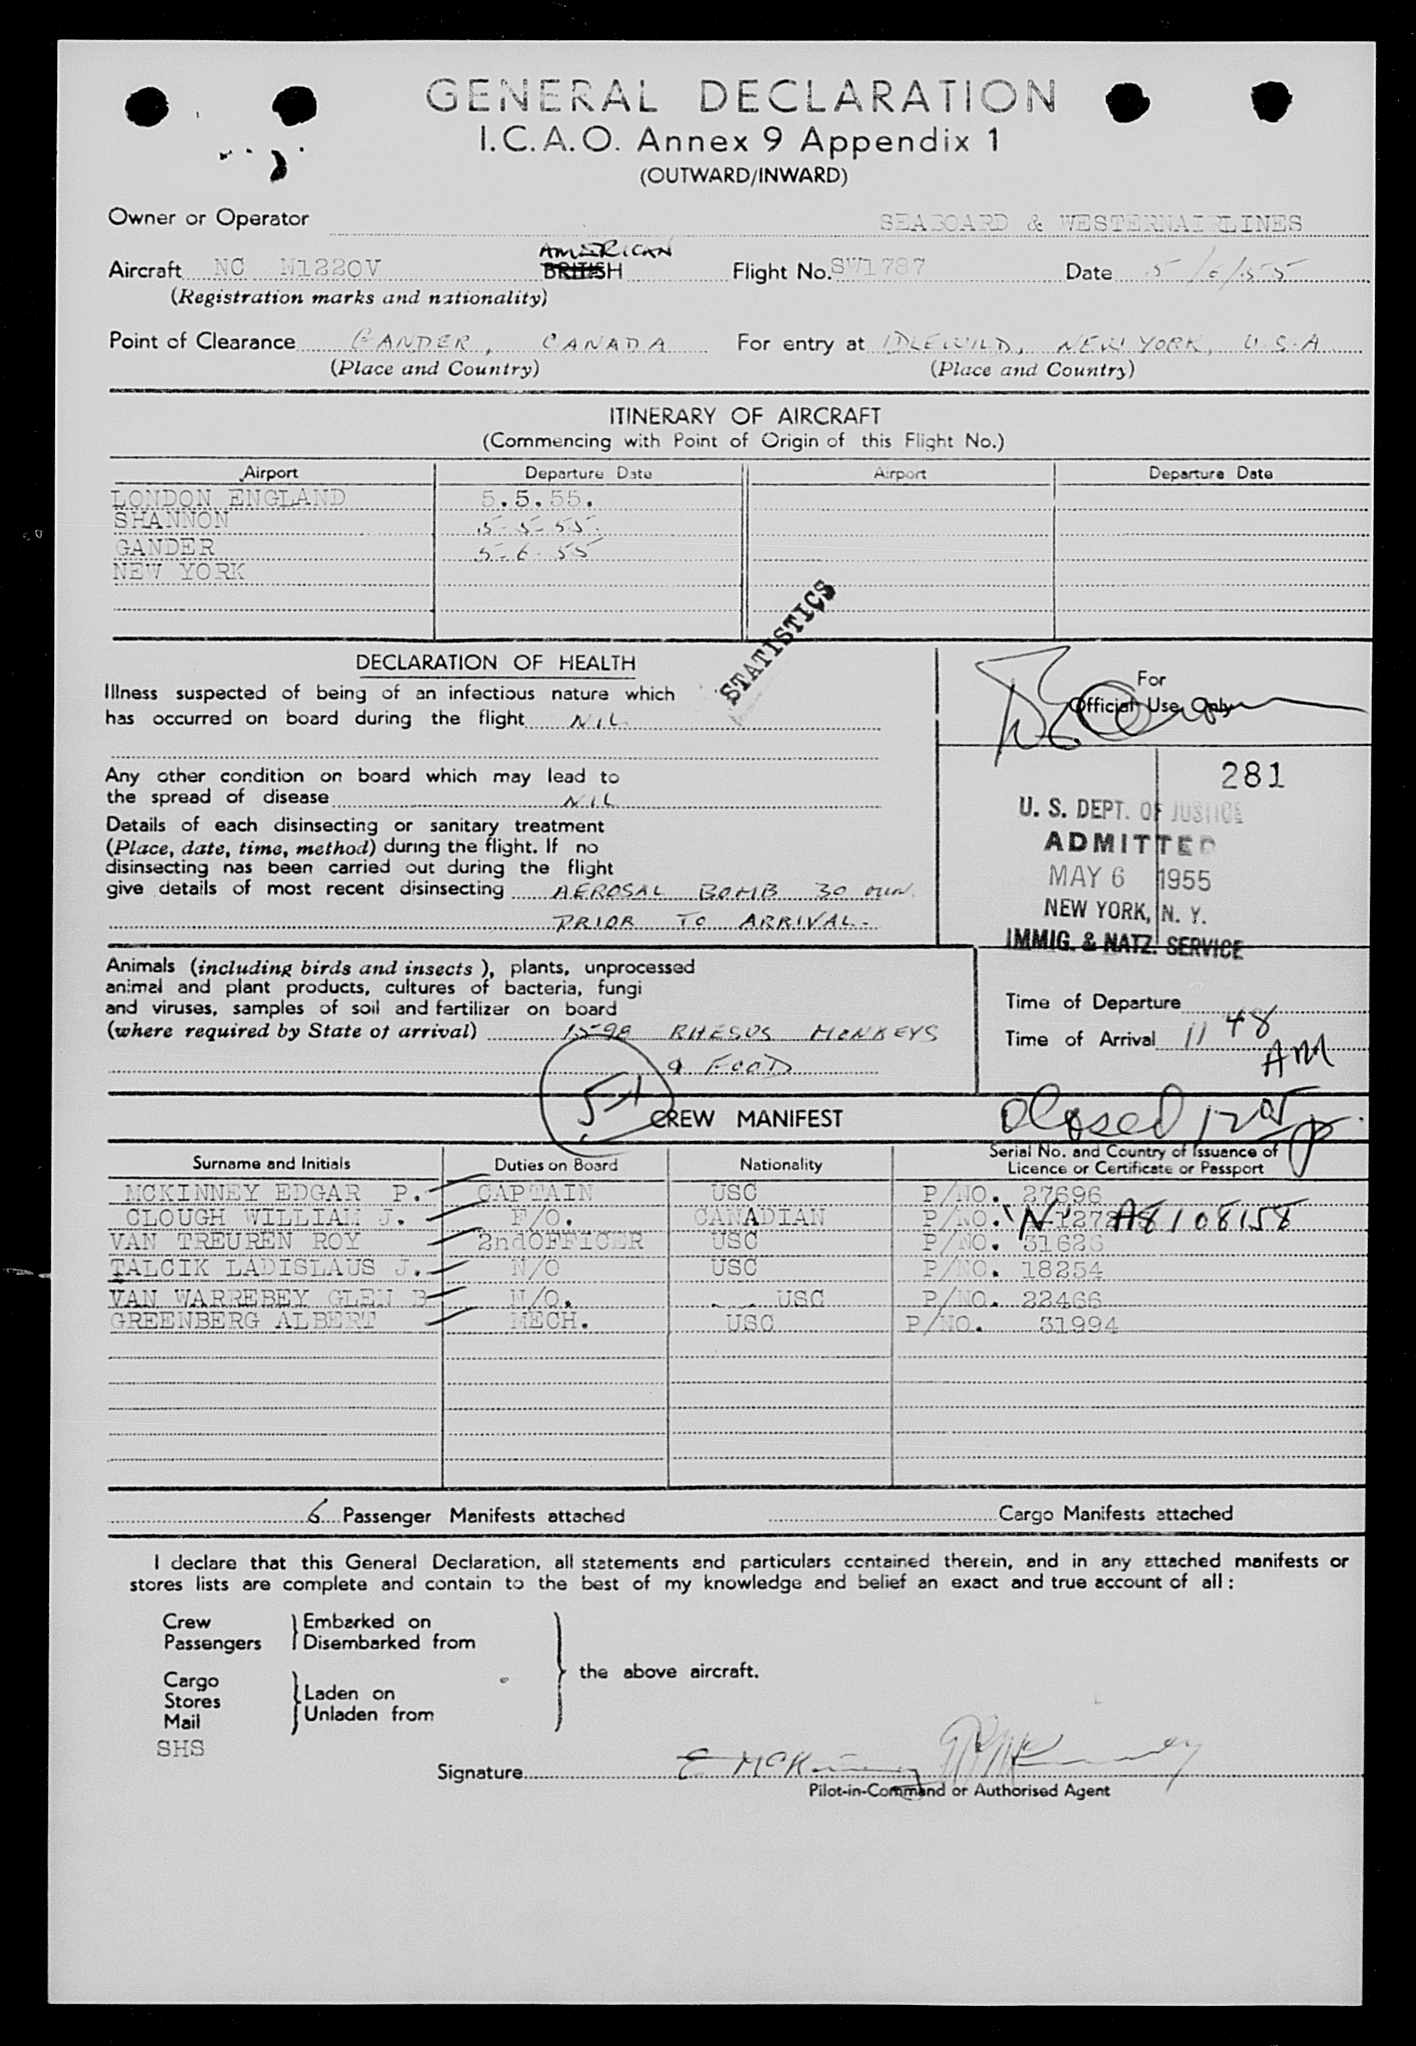 GENERAL DECLARATION
I.C.A.O. Annex 9 Appendix 1
(OUTWARD/INWARD)
Owner or Operator SEABOARD & WESTERNAIRLINES
AMERICAN
Aircraft NC N1220V BRITISH Flight No. SW1787 Date 5/6/55
(Registration marks and nationality)
Point of Clearance GANDER, CANADA For entry at IDLEWILD, NEW YORK, U.S.A
(Place and Country) (Place and Country)
ITINERARY OF AIRCRAFT
(Commencing with Point of Origin of this Flight No.)
Airport Departure Date Airport Departure Date
LONDON ENGLAND 5.5.55.
SHANNON 5-5-55.
GANDER 5-6-55
NEW YORK
STATISTICS
DECLARATION OF HEALTH
Illness suspected of being of an infectious nature which
has occurred on board during the flight NIL
Any other condition on board which may lead to
the spread of disease NIL
Details of each disinsecting or sanitary treatment
(Place, date, time, method) during the flight. If no
disinsecting has been carried out during the flight
give details of most recent disinsecting AEROSAL BOMB 30 MIN.
PRIOR TO ARRIVAL-
For
Official Use Only
281
U. S. DEPT. OF JUSTICE
ADMITTED
MAY 6 1955
NEW YORK, N. Y.
IMMIG. & NATZ. SERVICE
Animals (including birds and insects), plants, unprocessed
animal and plant products, cultures of bacteria, fungi
and viruses, samples of soil and fertilizer on board
(where required by State of arrival) 1598 RHESUS MONKEYS
& FOOD
Time of Departure
Time of Arrival 11 48
AM
CREW MANIFEST
Closed 12 05 P
Surname and Initials Duties on Board Nationality Serial No. and Country of Issuance of
Licence or Certificate or Passport
MCKINNEY EDGAR P. CAPTAIN USC P/NO. 27696
CLOUGH WILLIAM J. F/O. CANADIAN P/NO. A8108158
VAN TREUREN ROY 2ndOFFICER USC P/NO. 31626
TALCIK LADISLAUS J. N/O USC P/NO. 18254
VAN WARREBEY GLEN B N/O. USC P/NO. 22466
GREENBERG ALBERT MECH. USC P/NO. 31994
6 Passenger Manifests attached Cargo Manifests attached
I declare that this General Declaration, all statements and particulars contained therein, and in any attached manifests or
stores lists are complete and contain to the best of my knowledge and belief an exact and true account of all :
Crew Embarked on
Passengers Disembarked from
the above aircraft.
Cargo
Stores Laden on
Mail Unladen from
SHS
Signature E McKinney
Pilot-in-Command or Authorised Agent